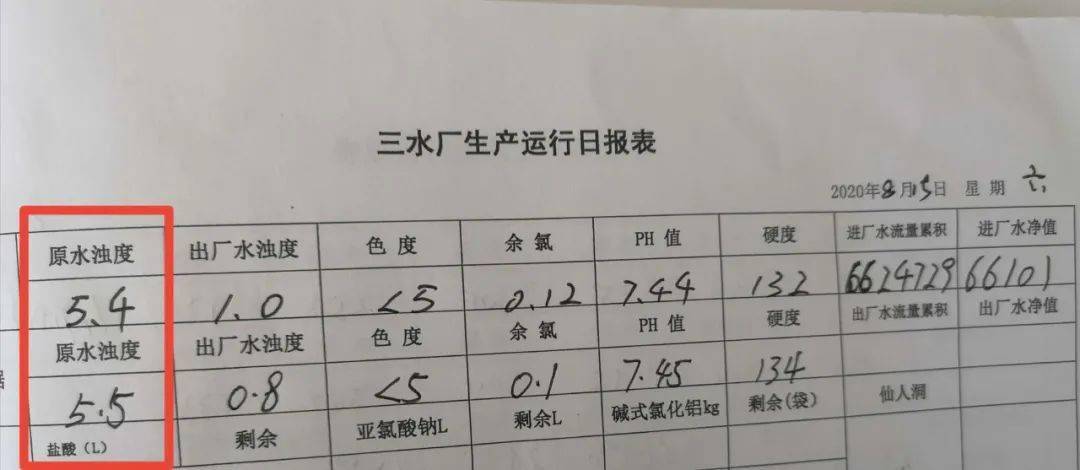 三水厂生产运行日报表
2020年8月15日 星期 六
原水浊度 出厂水浊度 色度 余氯 PH值 硬度 进厂水流量累积 进厂水净值
5.4 1.0 <5 0.12 7.44 132 6624729 66101
原水浊度 出厂水浊度 色度 余氯 PH值 硬度 出厂水流量累积 出厂水净值
5.5 0.8 <5 0.1 7.45 134
盐酸（L） 剩余 亚氯酸钠L 剩余L 碱式氯化铝kg 剩余(袋) 仙人洞